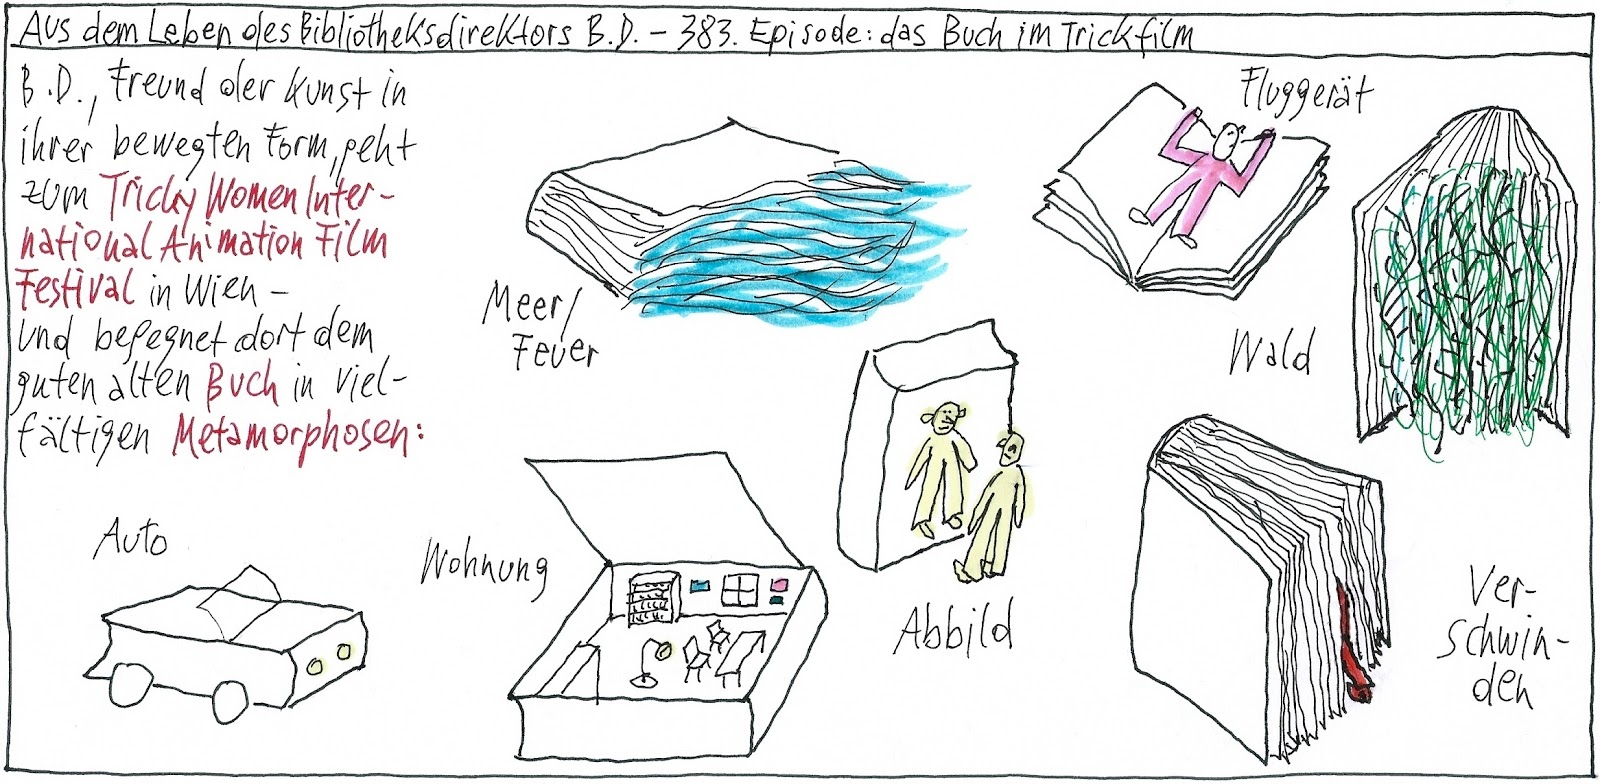 Aus dem Leben des Bibliotheksdirektors B.D. – 383. Episode: das Buch im Trickfilm
B.D., Freund der Kunst in
ihrer bewegten Form, geht
zum Tricky Women Inter-
national Animation Film
Festival in Wien –
und begegnet dort dem
guten alten Buch in viel-
fältigen Metamorphosen:
Meer/
Feuer
Fluggerät
Wald
Auto
Wohnung
Abbild
Ver-
schwin-
den